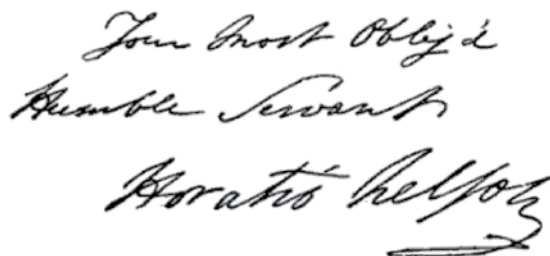 Your most Oblig'd
Humble Servant
Horatio Nelson